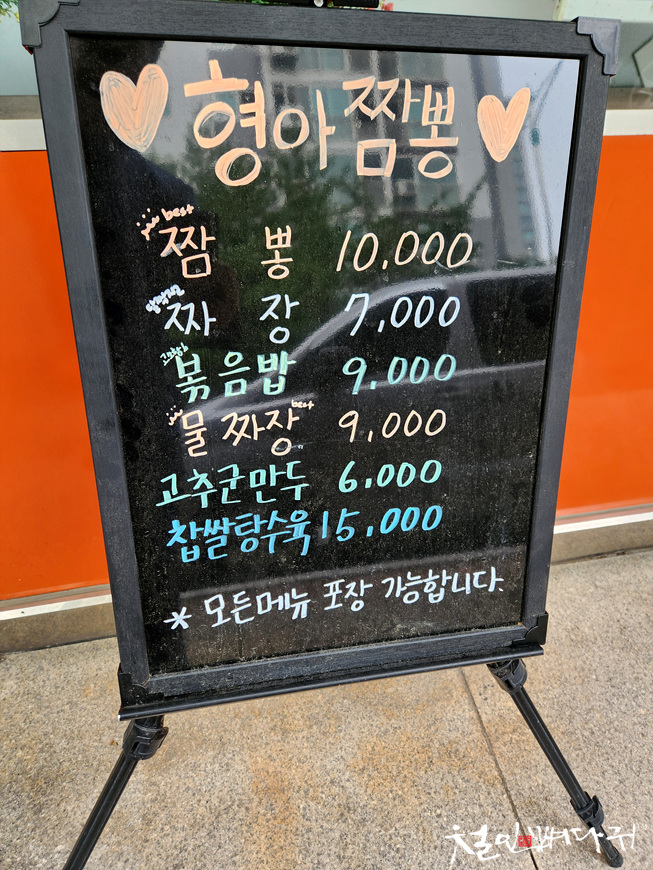 형아짬뽕
best
짬뽕 10,000
짜장 7,000
볶음밥 9,000
best
물짜장 9,000
고추군만두 6,000
찹쌀탕수육 15,000
* 모든메뉴 포장 가능합니다.